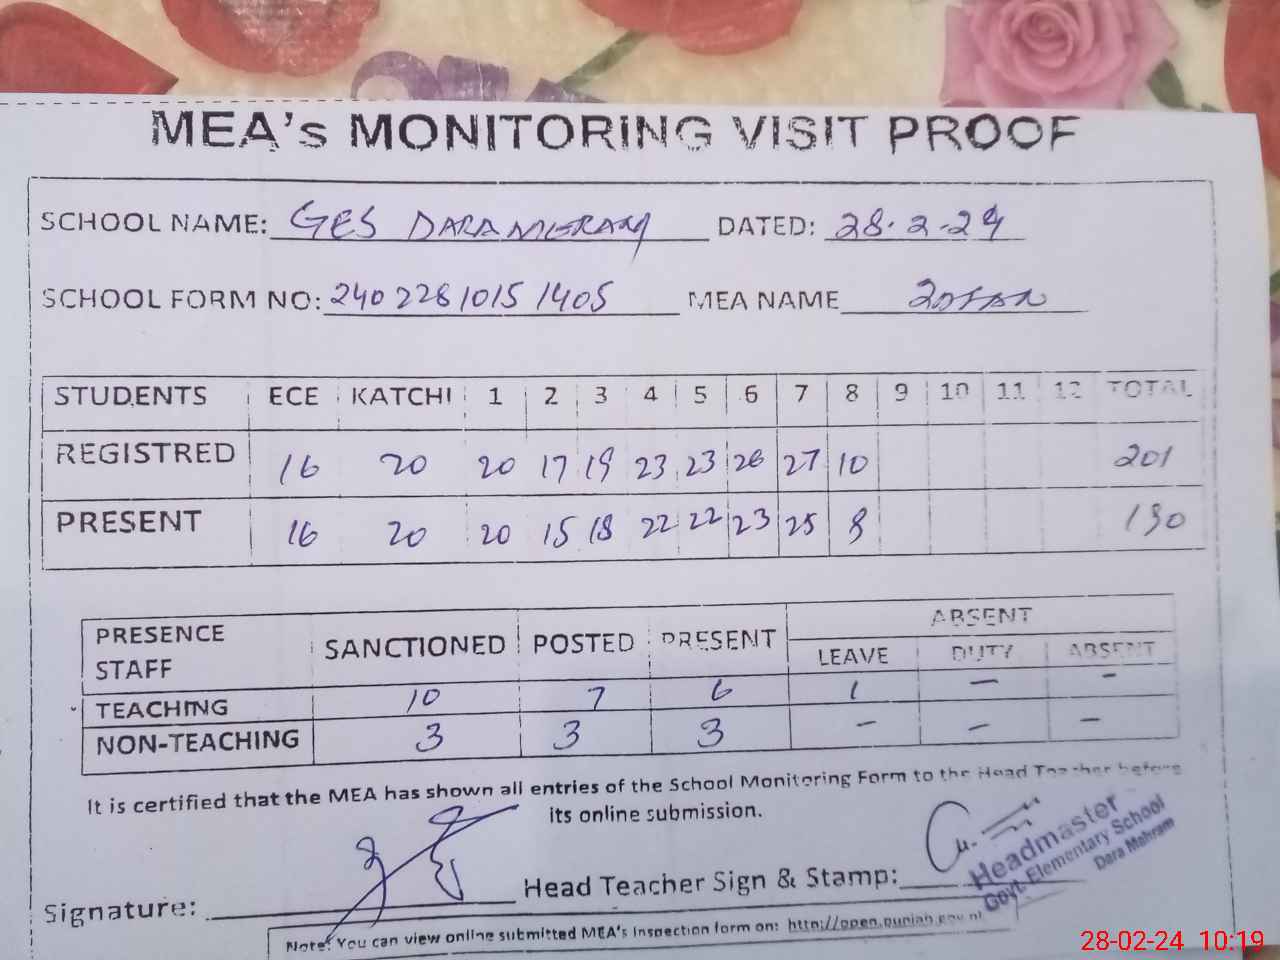 MEA's MONITORING VISIT PROOF
SCHOOL NAME: GES DARA MEHRAM DATED: 28-2-24
SCHOOL FORM NO: 24022810151405 MEA NAME
STUDENTS ECE KATCHI 1 2 3 4 5 6 7 8 9 10 11 12 TOTAL
REGISTRED 16 20 20 17 19 23 23 26 27 10 201
PRESENT 16 20 20 15 18 22 22 23 25 8 190
PRESENCE STAFF SANCTIONED POSTED PRESENT ABSENT
LEAVE DUTY ABSENT
TEACHING 10 7 6 1 - -
NON-TEACHING 3 3 3 - - -
It is certified that the MEA has shown all entries of the School Monitoring Form to the Head Teacher before
its online submission.
Signature: Head Teacher Sign & Stamp:
Headmaster
Govt. Elementary School
Dara Mehram
Note: You can view online submitted MEA's Inspection form on: http://open.punjab.gov.pk
28-02-24 10:19